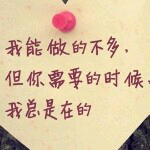 我能做的不多，
但你需要的时候、
我总是在的